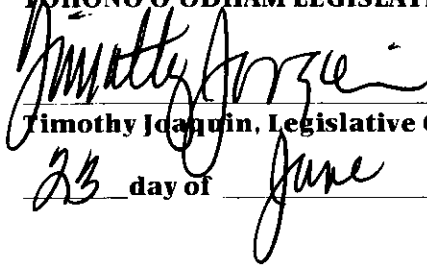 TOHONO O'ODHAM LEGISLATI
Timothy Joaquin
Timothy Joaquin, Legislative
23 day of June